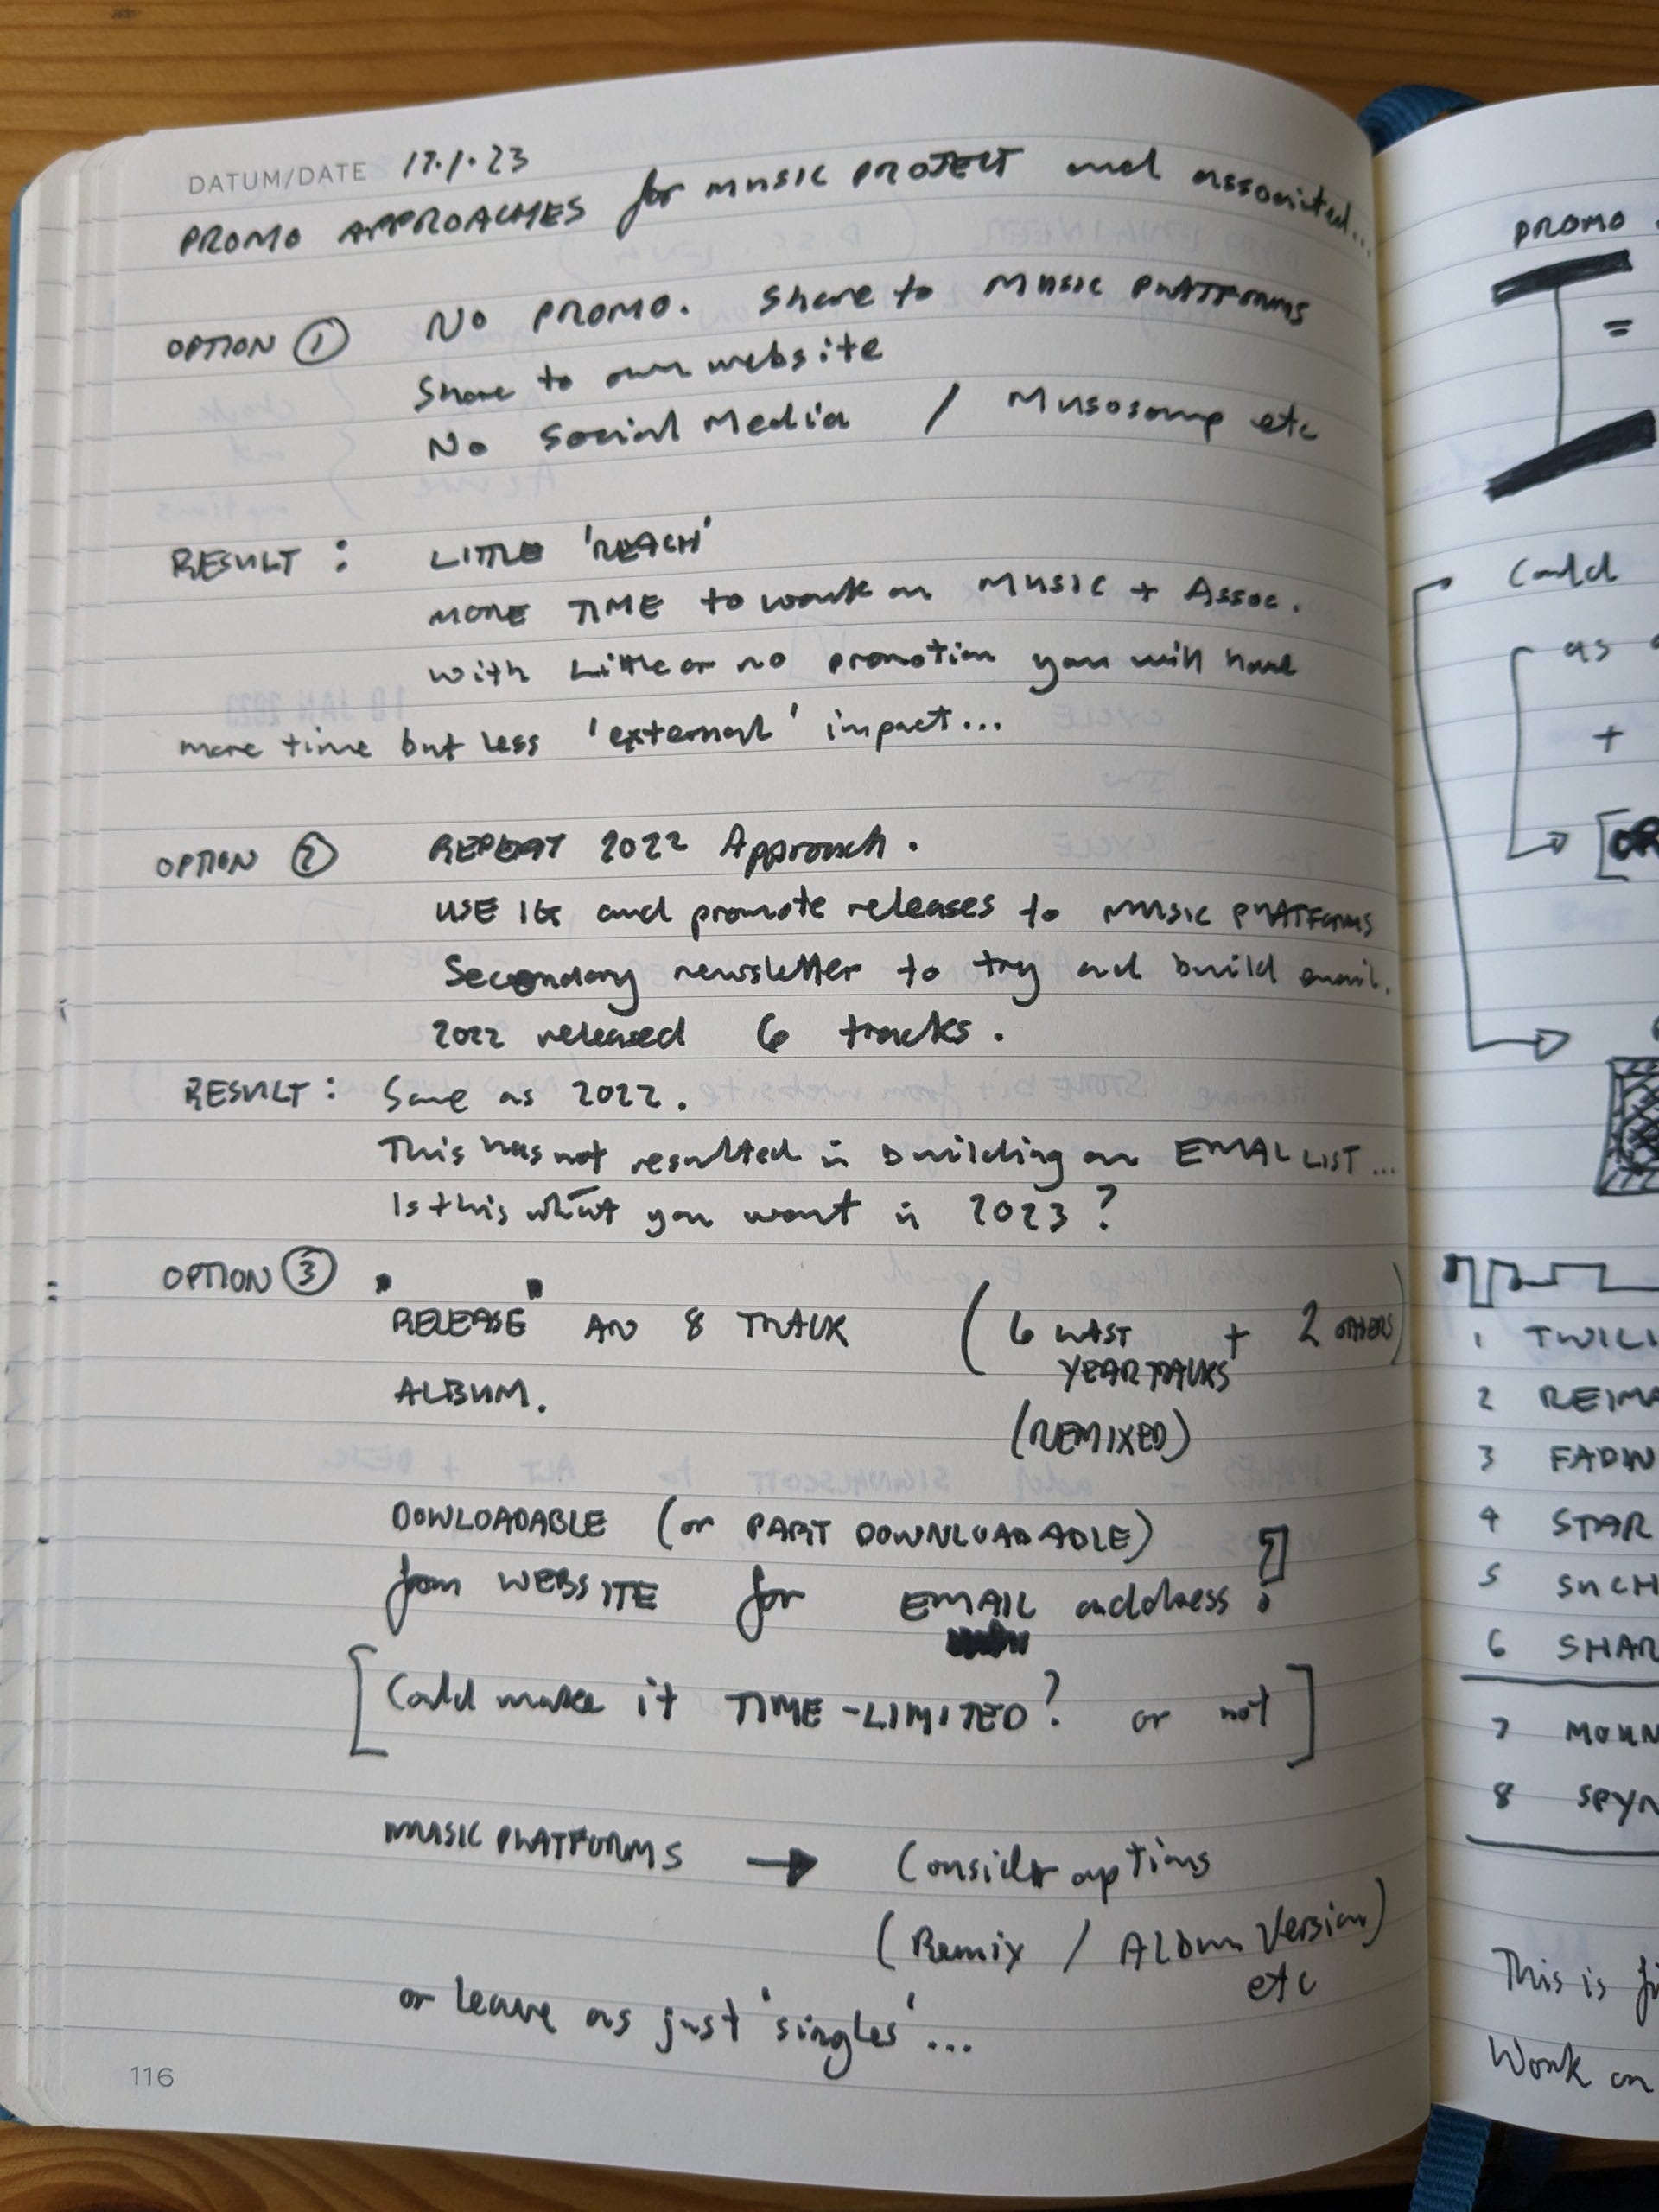 DATUM/DATE 17.1.23
PROMO APPROACHES for MUSIC PROJECT and associated...
OPTION 1 NO PROMO. Share to MUSIC PLATFORMS
Share to own website
No Social Media / Musosoup etc
RESULT : LITTLE 'REACH'
MORE TIME to work on MUSIC + Assoc.
With Little or no promotion you will have
more time but less 'external' impact...
OPTION 2 REPEAT 2022 Approach.
USE IG and promote releases to MUSIC PLATFORMS
Secondary newsletter to try and build email.
2022 released 6 tracks.
RESULT : Same as 2022.
This has not resulted in building an EMAIL LIST...
Is this what you want in 2023?
OPTION 3
"RELEASE" AN 8 TRACK (6 LAST + 2 OTHERS)
YEAR TRACKS
ALBUM.
(REMIXED)
DOWLOADABLE (or PART DOWNLOADABLE)
from WEBSITE for EMAIL address?
[Could make it TIME-LIMITED? or not]
MUSIC PLATFORMS → Consider options
(Remix / ALBum Version)
etc
or leave as just 'singles'...
116
PROMO
=
Could
as
+
[OR
1 TWILI
2 REIMA
3 FADIN
4 STAR
5 SUCH
6 SHAR
7 MOUN
8 SPYN
This is
Work on